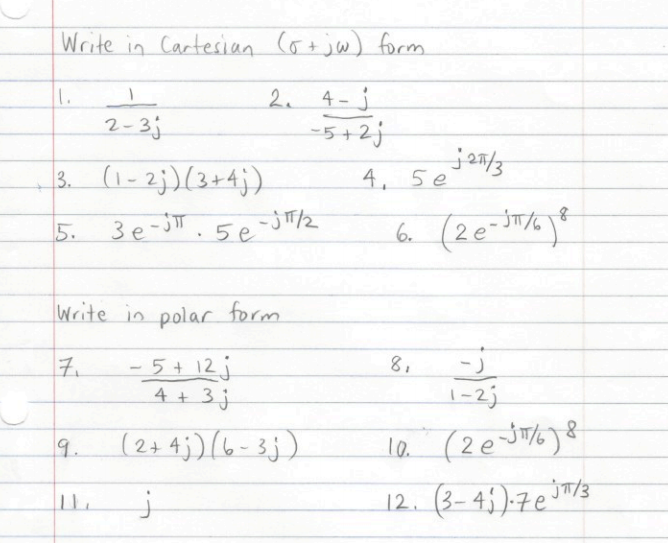 Write in Cartesian (σ + jω) form
1. 1/(2-3j) 2. (4-j)/(-5+2j)
3. (1-2j)(3+4j) 4. 5e^(j2π/3)
5. 3e^(-jπ) · 5e^(-jπ/2) 6. (2e^(-jπ/6))^8
Write in polar form
7. (-5+12j)/(4+3j) 8. -j/(1-2j)
9. (2+4j)(6-3j) 10. (2e^(-jπ/6))^8
11. j 12. (3-4j)·7e^(jπ/3)